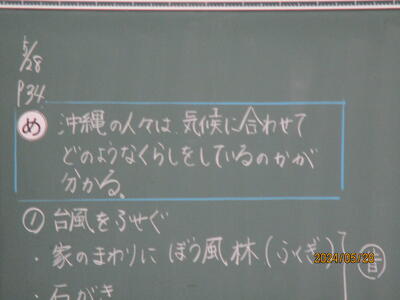 5/28
P34.
め 沖縄の人々は、気候に合わせて
どのようなくらしをしているのかが
分かる。
① 台風をふせぐ
・家のまわりにぼう風林(ふくぎ) 昔
・石がき
2024/05/28